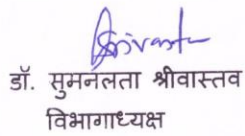 डॉ. सुमनलता श्रीवास्तव
विभागाध्यक्ष